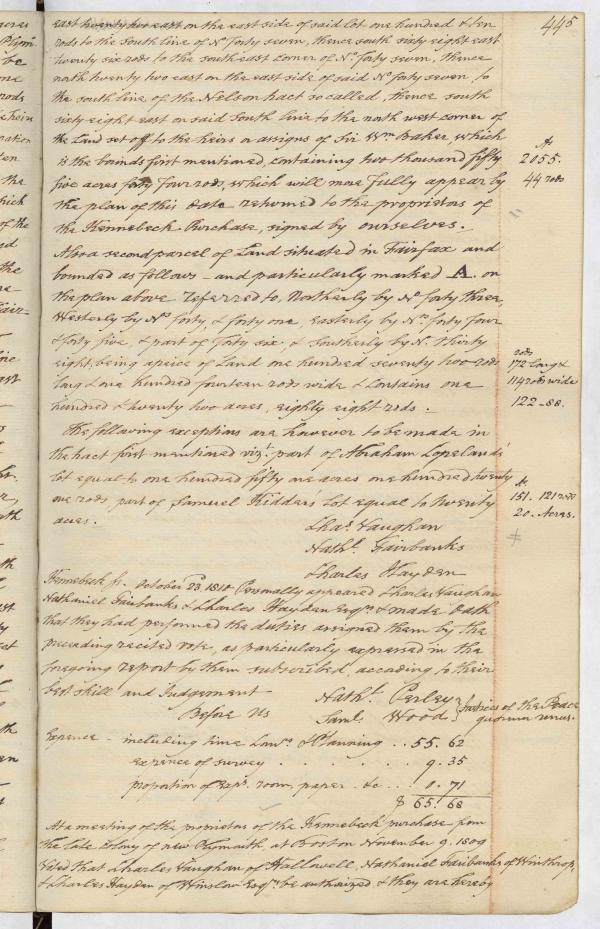 445
east twenty two east on the east side of said lot one hundred & ten
rods to the south line of No. forty seven, thence south sixty eight east
twenty six rods to the southeast corner of No. forty seven, thence
north twenty two east on the east side of said No. forty seven, to
the south line of the Nelson tract so called, thence south
sixty eight east on said South line to the north west corner of
the Land set off to the heirs or assigns of Sir Wm. Baker, which
is the bounds first mentioned, containing two thousand fifty
five acres forty four rods, which will more fully appear by
the plan of this date returned to the proprietors of
the Kennebeck Purchase, signed by ourselves.
As
2055.
44 rods
Also a second parcel of Land situated in Fairfax and
bounded as follows - and particularly marked A. on
the plan above referred to, Northerly by No. forty three,
Westerly by No. forty, & forty one, Easterly by No. forty four
& forty five, & part of forty six & Southerly by N. thirty
eight, being a peice of Land one hundred seventy two rods
long & one hundred fourteen rods wide & contains one
hundred & twenty two acres, eighty eight rods.
rods
172 long &
114 rods wide
122-88.
The following exceptions are however to be made in
the tract first mentioned vizt. part of Abraham Lopeland's
lot equal to one hundred fifty one acres one hundred twenty
one rods, part of Samuel Kidder's Lot equal to twenty
acres.
As
151. 121 rods
20. Acres.
Chas. Vaughan
Nathl. Fairbanks
Charles Hayden
Kennebeck ss. October 23d. 1810 Personally appeared Charles Vaughan
Nathaniel Fairbanks & Charles Hayden Esqrs. & made Oath
that they had performed the duties assigned them by the
preceeding recited vote, as particularly expressed in the
foregoing report by them subscribed, according to their
best skill and Judgement
Before Us
Nathl. Perley
Saml. Wood
} Justices of the Peace
quorum unus.
Expence - including time Lawrs. & Planning .. 55. 62
expence of survey . . . . . . 9. 35
proportion of exps. room, paper &c ... 0. 71
$ 65. 68
At a meeting of the proprietors of the Kennebeck purchase from
the late Colony of new Plymouth, at Boston November 9. 1809
Voted that Charles Vaughan of Hallowell, Nathaniel Fairbanks of Winthrop,
& Charles Hayden of Winslow Esqrs. be authorized, & they are hereby